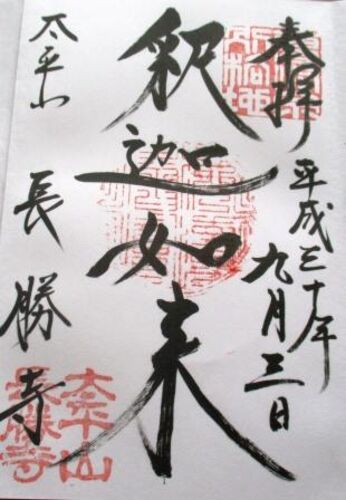 奉拝
平成三十年
九月三日
釈迦如来
太平山
長勝寺
太平山
長勝寺